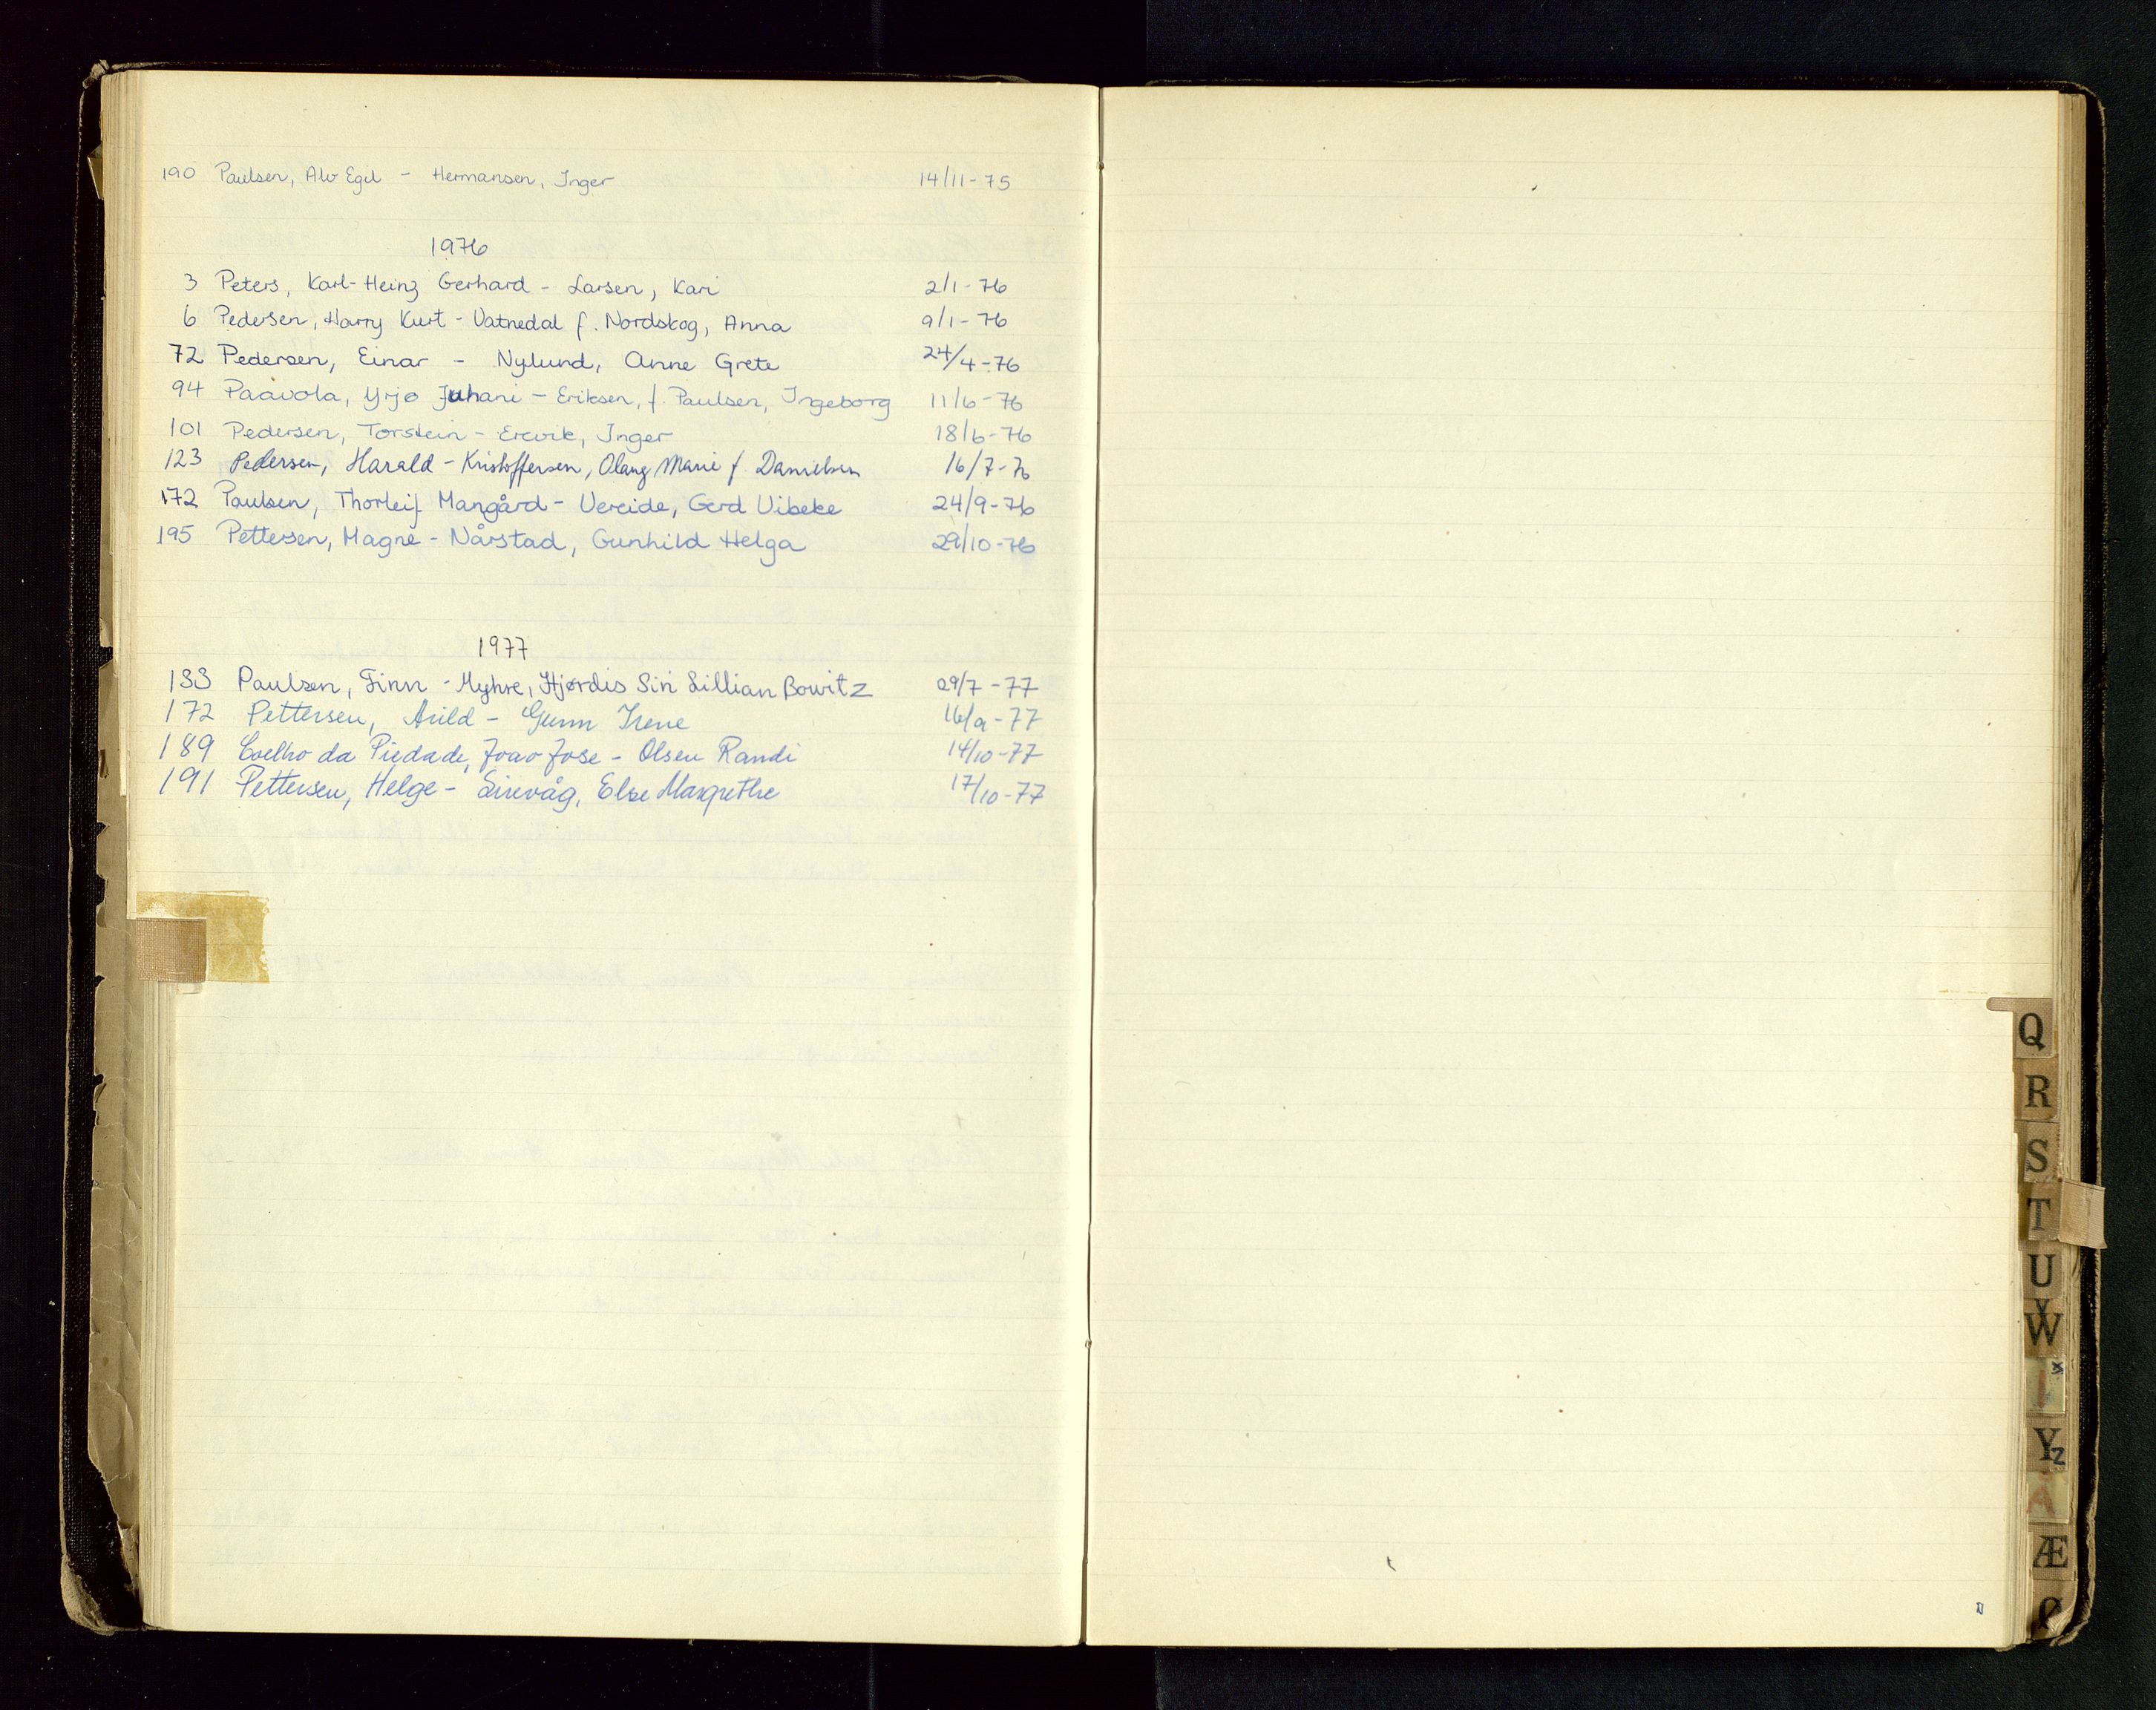 190 Paulsen, Alv Egil - Hermansen, Inger 14/11-75
1976
3 Peters, Karl-Heinz Gerhard - Larsen, Kari 2/1-76
6 Pedersen, Harry Kurt - Vatnedal f. Nordskog, Anna 9/1-76
72 Pedersen, Einar - Nylund, Anne Grete 24/4-76
94 Paavola, Yrjo Juhani - Eriksen, f. Paulsen, Ingeborg 11/6-76
101 Pedersen, Torstein - Erevik, Inger 18/6-76
123 Pedersen, Harald - Kristoffersen, Olaug Marie f. Danielsen 16/7-76
172 Paulsen, Thorleif Mangård - Vereide, Gerd Vibeke 24/9-76
195 Pettersen, Magne - Nårstad, Gunhild Helga 29/10-76
1977
133 Paulsen, Finn - Myhre, Hjørdis Siri Lillian Bowitz 29/7-77
172 Pettersen, Arild - Gunn Irene 16/9-77
189 Coelho da Piedade, Joao Jose - Olsen Randi 14/10-77
191 Pettersen, Helge - Sirevåg, Else Margrethe 17/10-77
Q
R
S
T
U
V
W
X
Y
Z
Æ
Ø